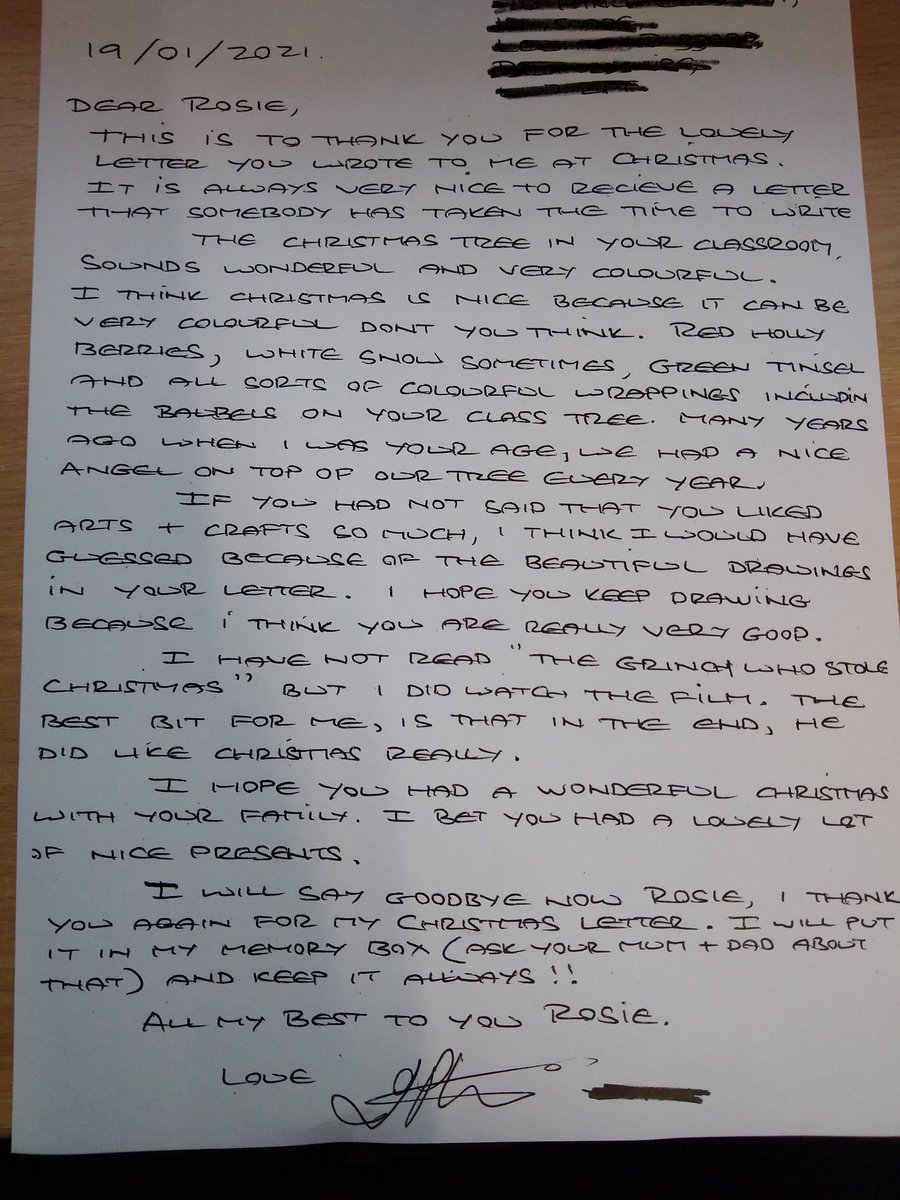 19/01/2021.
DEAR ROSIE,
THIS IS TO THANK YOU FOR THE LOVELY
LETTER YOU WROTE TO ME AT CHRISTMAS.
IT IS ALWAYS VERY NICE TO RECIEVE A LETTER
THAT SOMEBODY HAS TAKEN THE TIME TO WRITE
THE CHRISTMAS TREE IN YOUR CLASSROOM,
SOUNDS WONDERFUL AND VERY COLOURFUL.
I THINK CHRISTMAS IS NICE BECAUSE IT CAN BE
VERY COLOURFUL DONT YOU THINK. RED HOLLY
BERRIES, WHITE SNOW SOMETIMES, GREEN TINSEL
AND ALL SORTS OF COLOURFUL WRAPPINGS INCLUDIN
THE BAUBELS ON YOUR CLASS TREE. MANY YEARS
AGO WHEN I WAS YOUR AGE, WE HAD A NICE
ANGEL ON TOP OF OUR TREE EVERY YEAR.
IF YOU HAD NOT SAID THAT YOU LIKED
ARTS + CRAFTS SO MUCH, I THINK I WOULD HAVE
GUESSED BECAUSE OF THE BEAUTIFUL DRAWINGS
IN YOUR LETTER. I HOPE YOU KEEP DRAWING
BECAUSE I THINK YOU ARE REALLY VERY GOOD.
I HAVE NOT READ "THE GRINCH WHO STOLE
CHRISTMAS" BUT I DID WATCH THE FILM. THE
BEST BIT FOR ME, IS THAT IN THE END, HE
DID LIKE CHRISTMAS REALLY.
I HOPE YOU HAD A WONDERFUL CHRISTMAS
WITH YOUR FAMILY. I BET YOU HAD A LOVELY LOT
OF NICE PRESENTS.
I WILL SAY GOODBYE NOW ROSIE, I THANK
YOU AGAIN FOR MY CHRISTMAS LETTER. I WILL PUT
IT IN MY MEMORY BOX (ASK YOUR MUM + DAD ABOUT
THAT) AND KEEP IT ALWAYS!!
ALL MY BEST TO YOU ROSIE.
LOVE